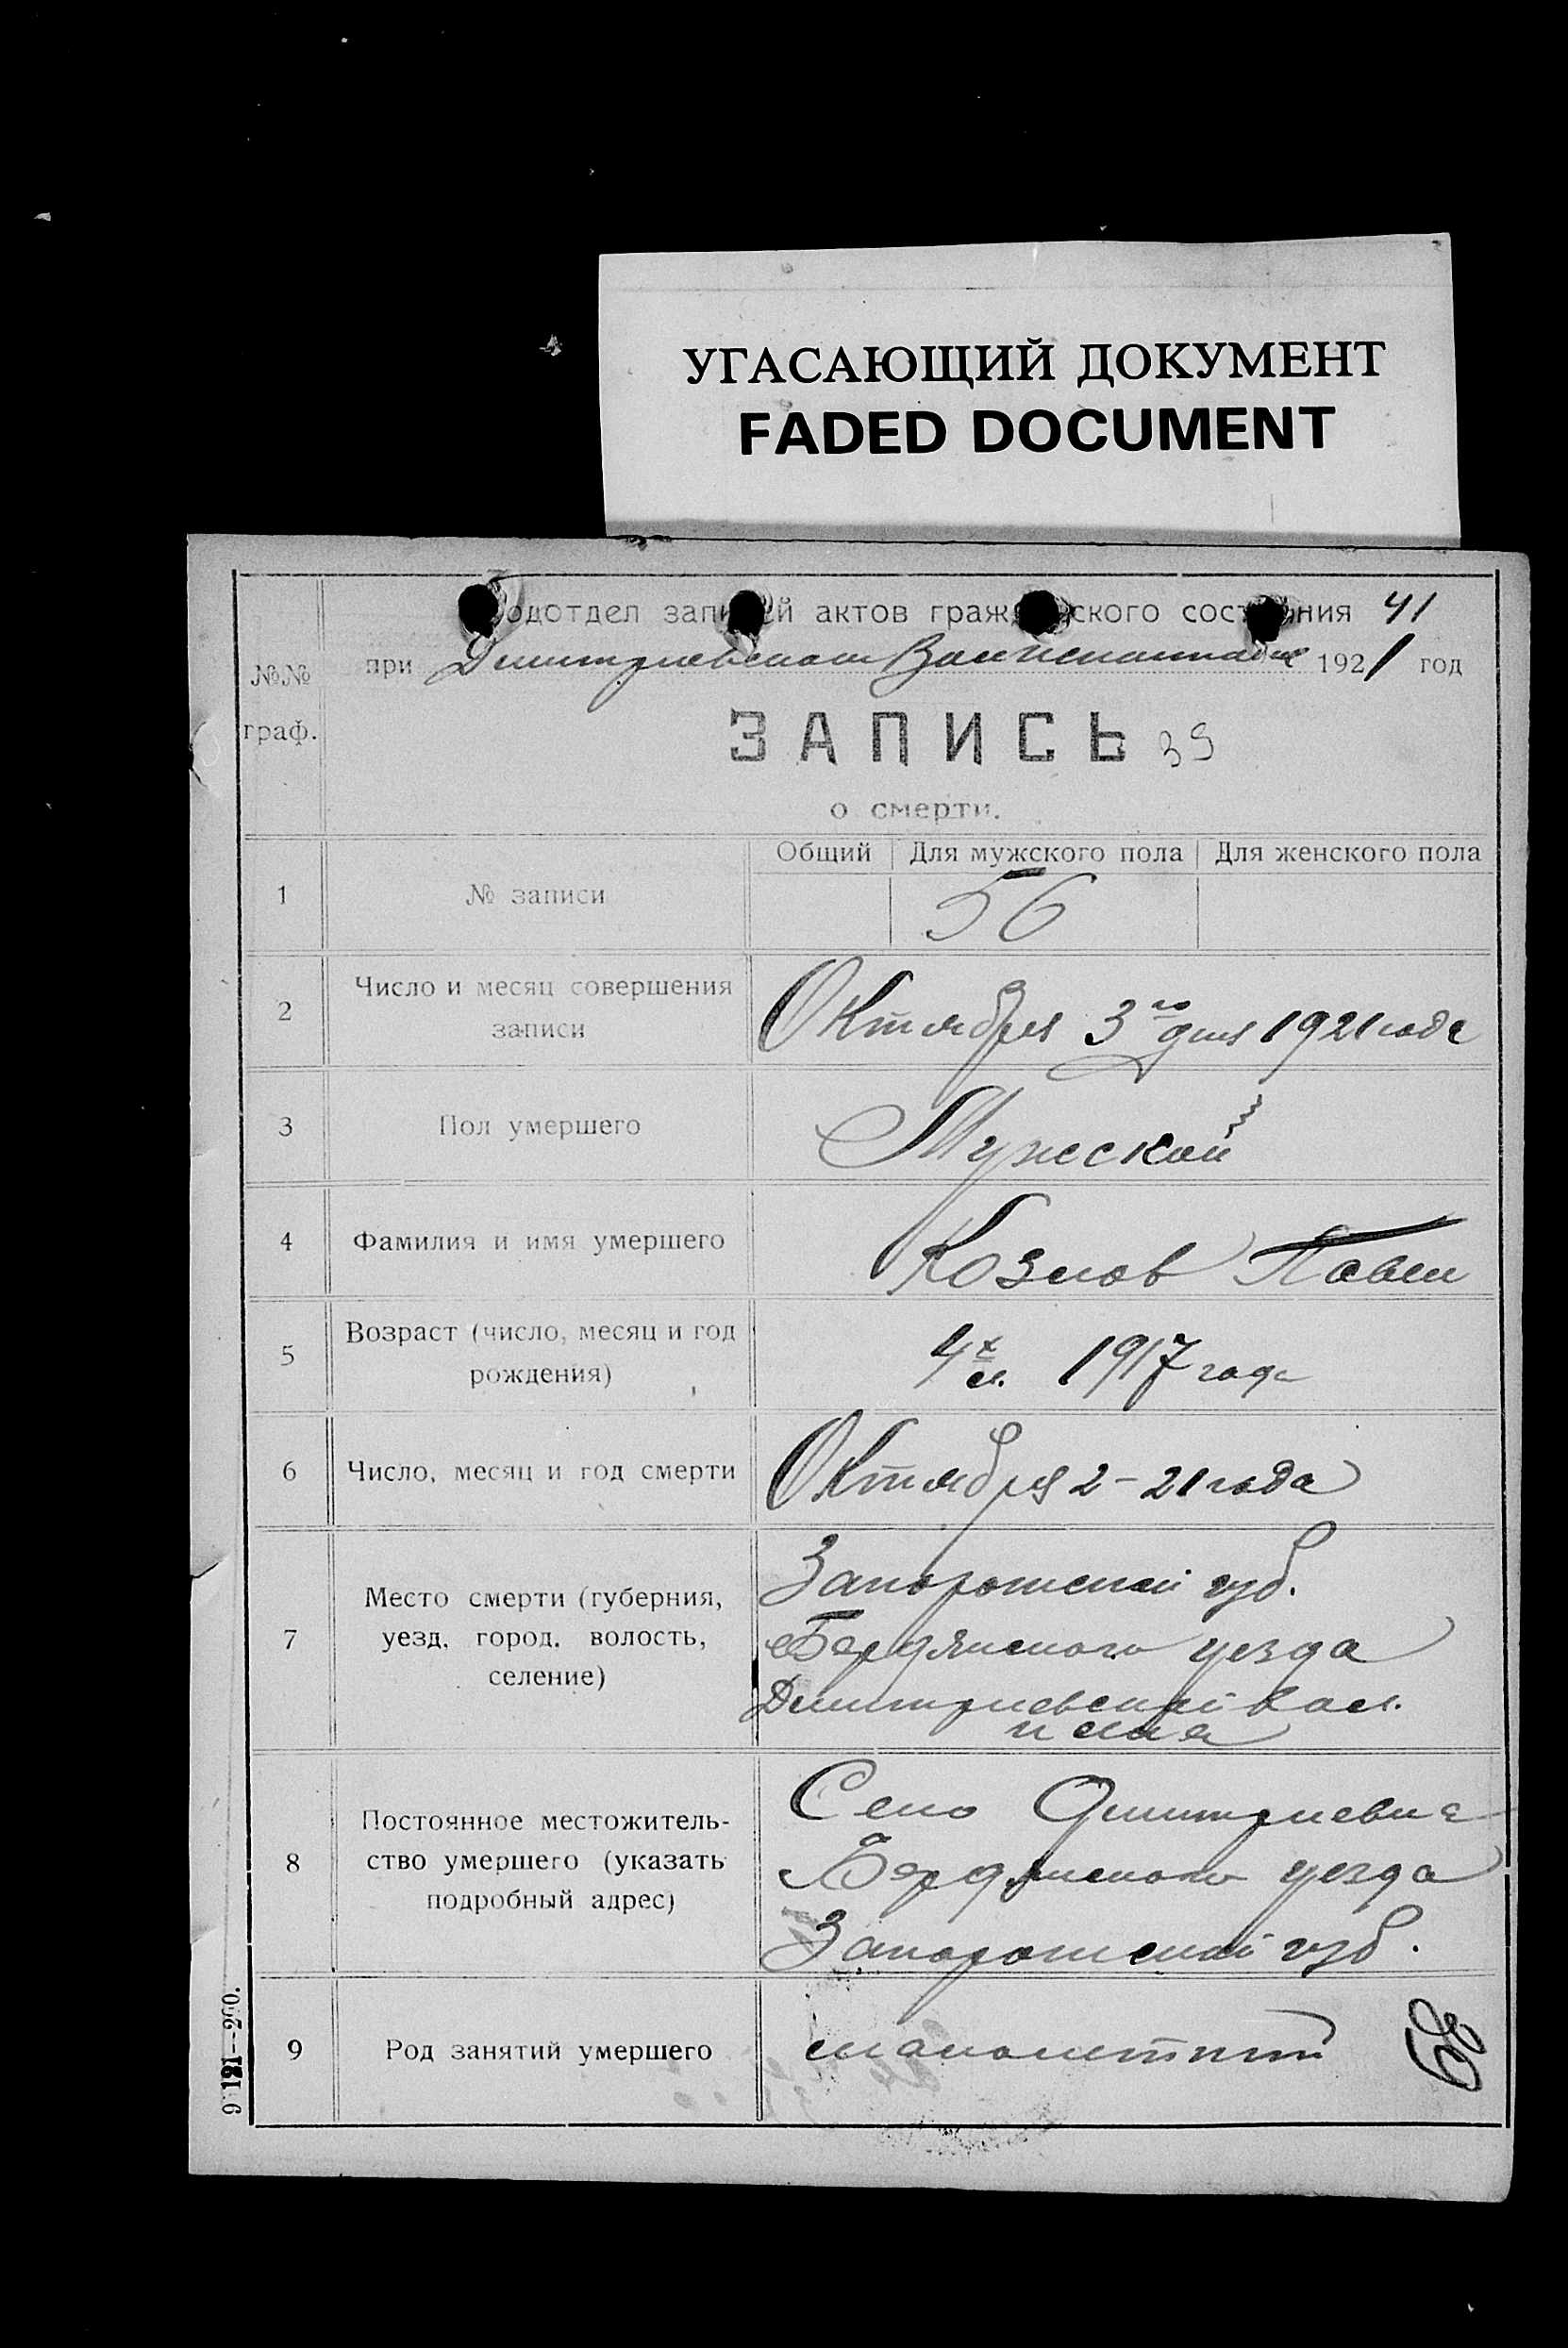 УГАСАЮЩИЙ ДОКУМЕНТ
FADED DOCUMENT
одотдел запи й актов граж ского сост ния 41
№№ граф.
при Димитриевском Волисполкоме 1921 год
ЗАПИСЬ 39
о смерти.
Общий Для мужского пола Для женского пола
1 № записи 56
2 Число и месяц совершения записи Октября 3го дня 1921 года
3 Пол умершего Мужской
4 Фамилия и имя умершего Козлов Павел
5 Возраст (число, месяц и год рождения) 4х л. 1917 года
6 Число, месяц и год смерти Октября 2-21 года
7 Место смерти (губерния, уезд, город, волость, селение)
Запорожской губ.
Бердянского уезда
Димитриевской вол.
и села
8 Постоянное местожитель-
ство умершего (указать
подробный адрес)
Село Димитриевка
Бердянского уезда
Запорожской губ.
9 Род занятий умершего малолетний